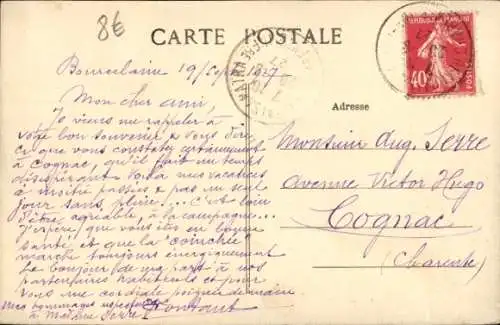 8€
CARTE POSTALE
REPUBLIQUE FRANÇAISE
40
POSTES
Adresse
19 Sept 1927
Mon cher ami,
Je viens me rappeler à
votre bon souvenir & vous dire
ce que vous constatez certainement
à Cognac, qu'il fait un temps
désespérant. Voilà nos vacances
à moitié passées & pas un seul
jour sans pluie!... C'est loin
d'être agréable, à la campagne...
J'espère que vous êtes en bonne
santé, et que la "coinchée"
marche toujours énergiquement
Le bonjour de ma part à nos
partenaires habituels et pour
vous une cordiale poignée de main
Mes hommages respectueux
à Madame Serre
Monsieur Aug. Serre
Avenue Victor Hugo
Cognac
(Charente)